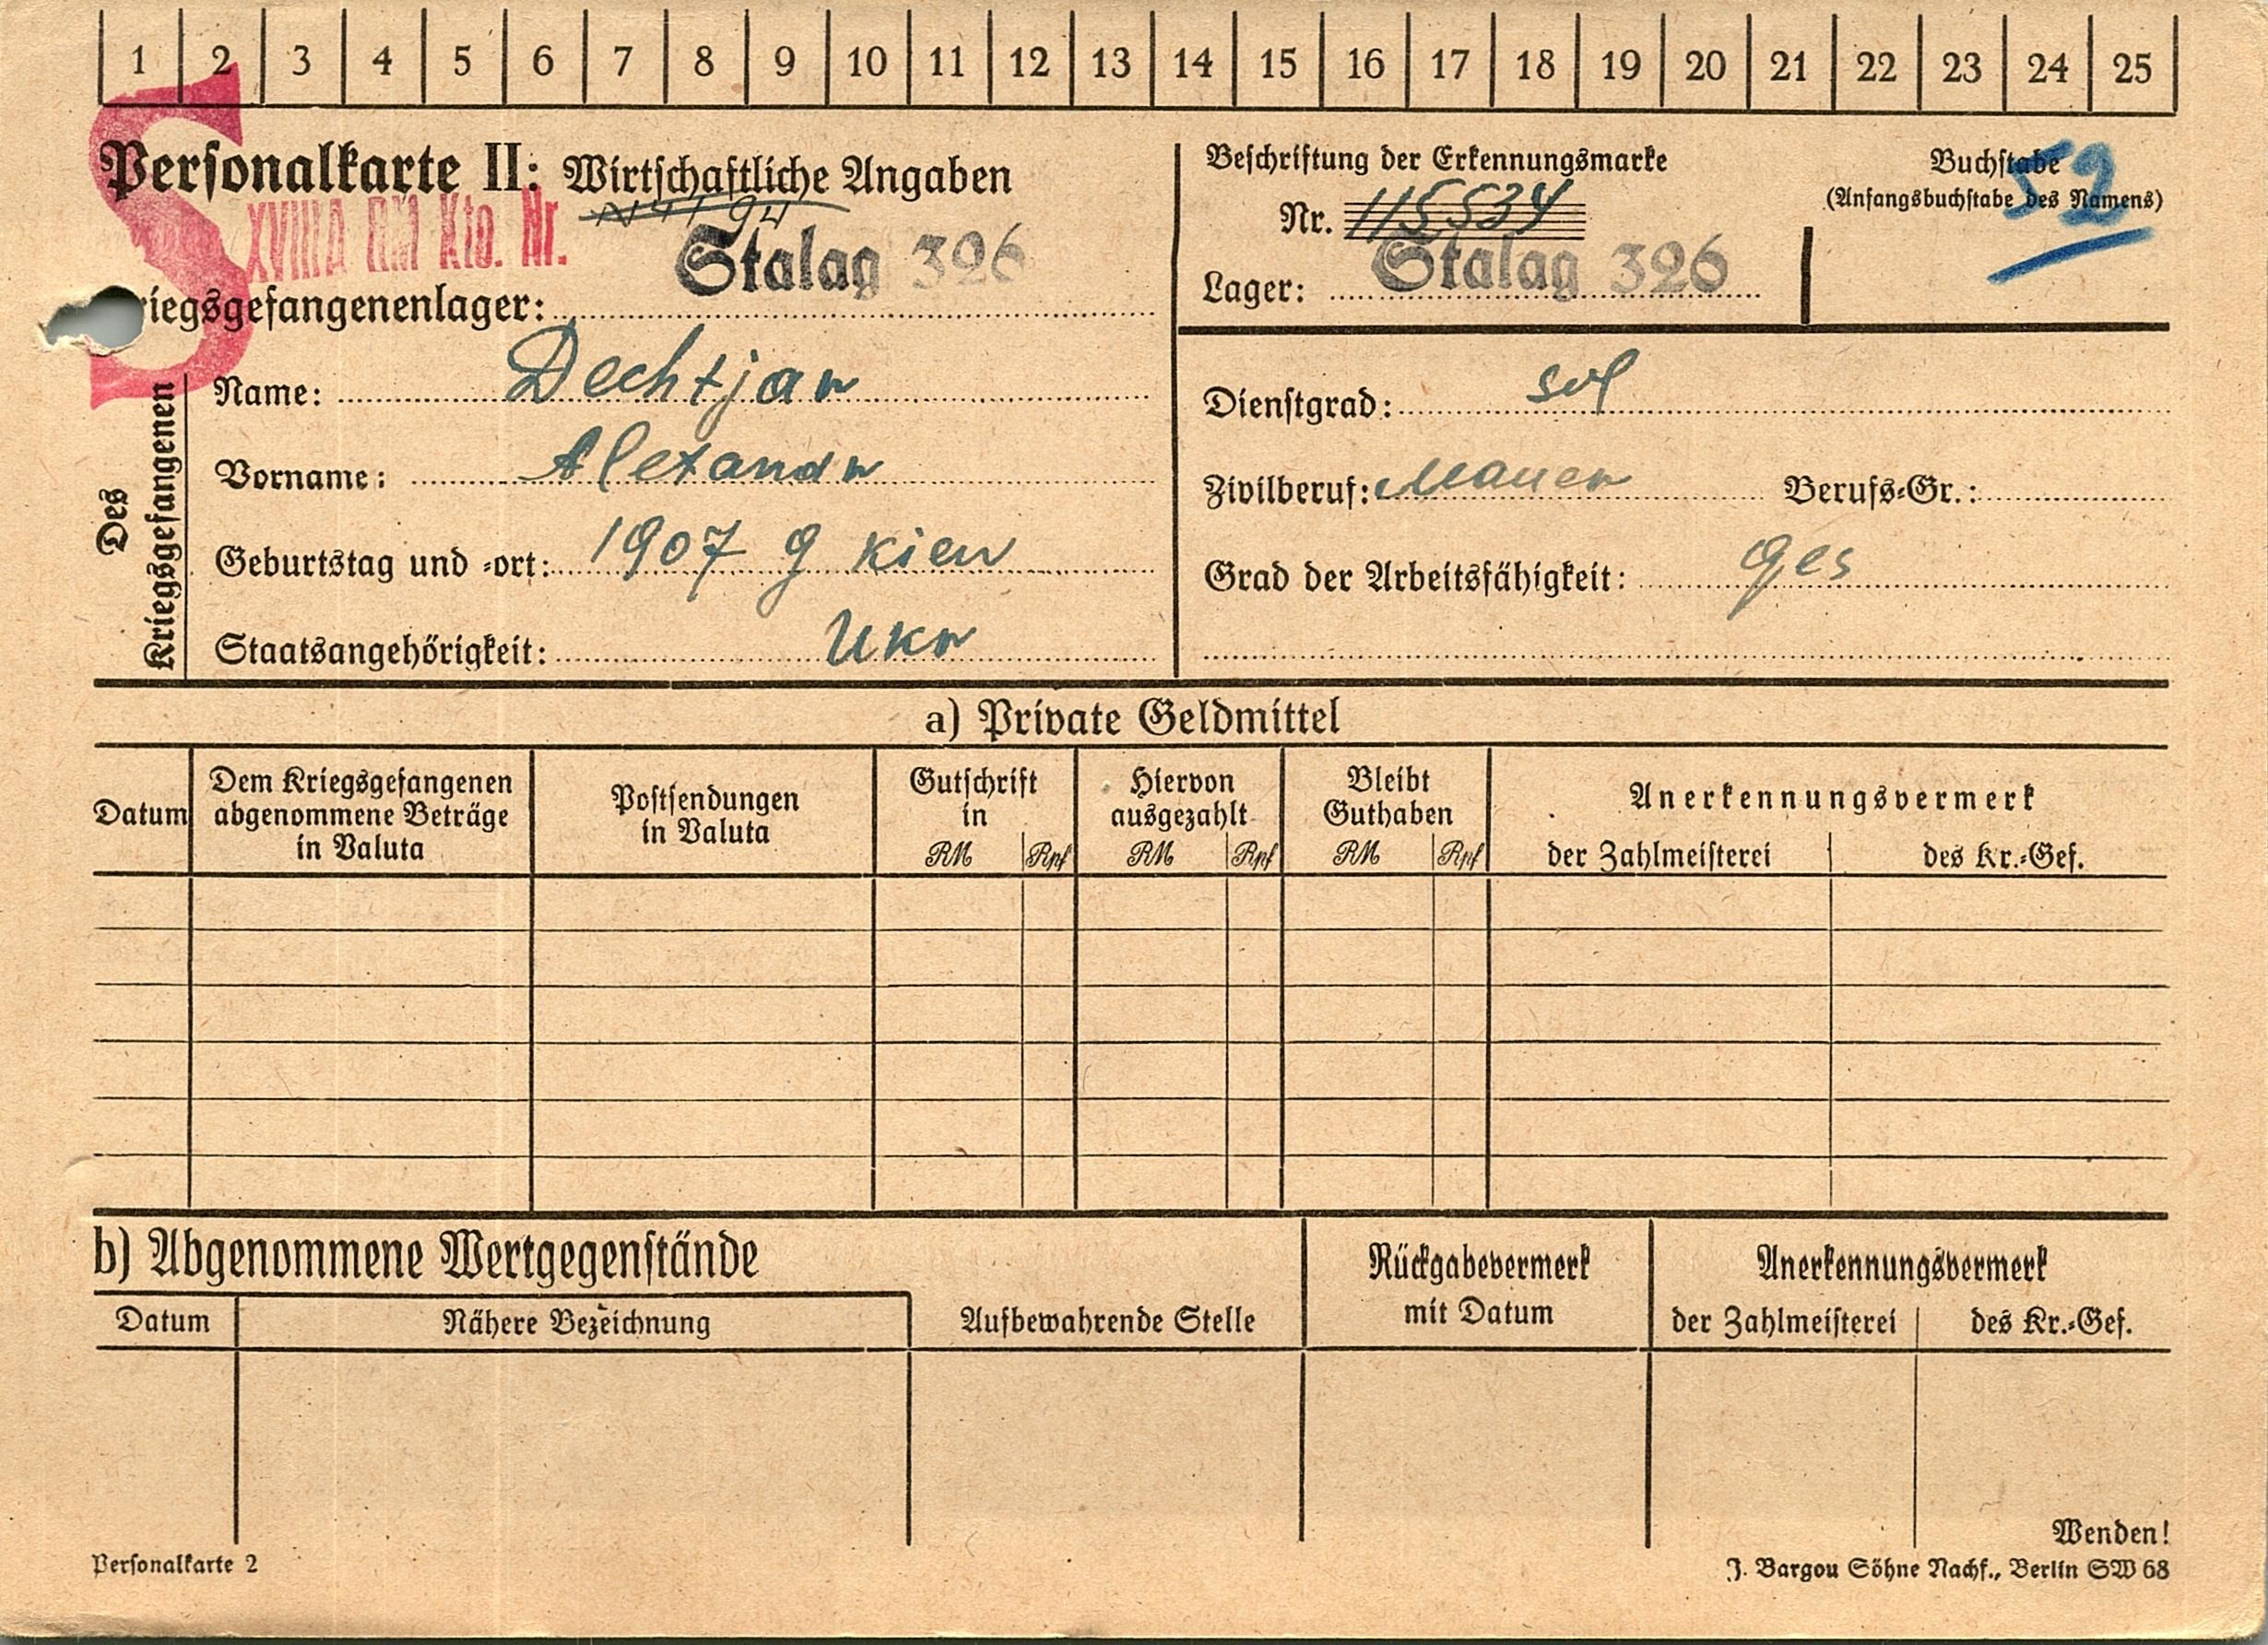 1 2 3 4 5 6 7 8 9 10 11 12 13 14 15 16 17 18 19 20 21 22 23 24 25
S
Personalkarte II: Wirtschaftliche Angaben
XVIIIA RM Kto. Nr.
Stalag 326
Kriegsgefangenenlager:
Beschriftung der Erkennungsmarke
Nr. 115534
Lager: Stalag 326
Buchstabe
(Anfangsbuchstabe des Namens)
52
Des
Kriegsgefangenen
Name: Dechtjar
Vorname: Alexandr
Geburtstag und -ort: 1907 g Kiew
Staatsangehörigkeit: Ukr
Dienstgrad: sol
Zivilberuf: Mauer Berufs-Gr.:
Grad der Arbeitsfähigkeit: ges
a) Private Geldmittel
Datum
Dem Kriegsgefangenen
abgenommene Beträge
in Valuta
Postsendungen
in Valuta
Gutschrift
in
RM Rpf
Hiervon
ausgezahlt
RM Rpf
Bleibt
Guthaben
RM Rpf
Anerkennungsvermerk
der Zahlmeisterei des Kr.-Gef.
b) Abgenommene Wertgegenstände
Datum Nähere Bezeichnung Aufbewahrende Stelle
Rückgabevermerk
mit Datum
Anerkennungsvermerk
der Zahlmeisterei des Kr.-Gef.
Wenden!
Personalkarte 2
J. Bargou Söhne Nachf., Berlin SW 68